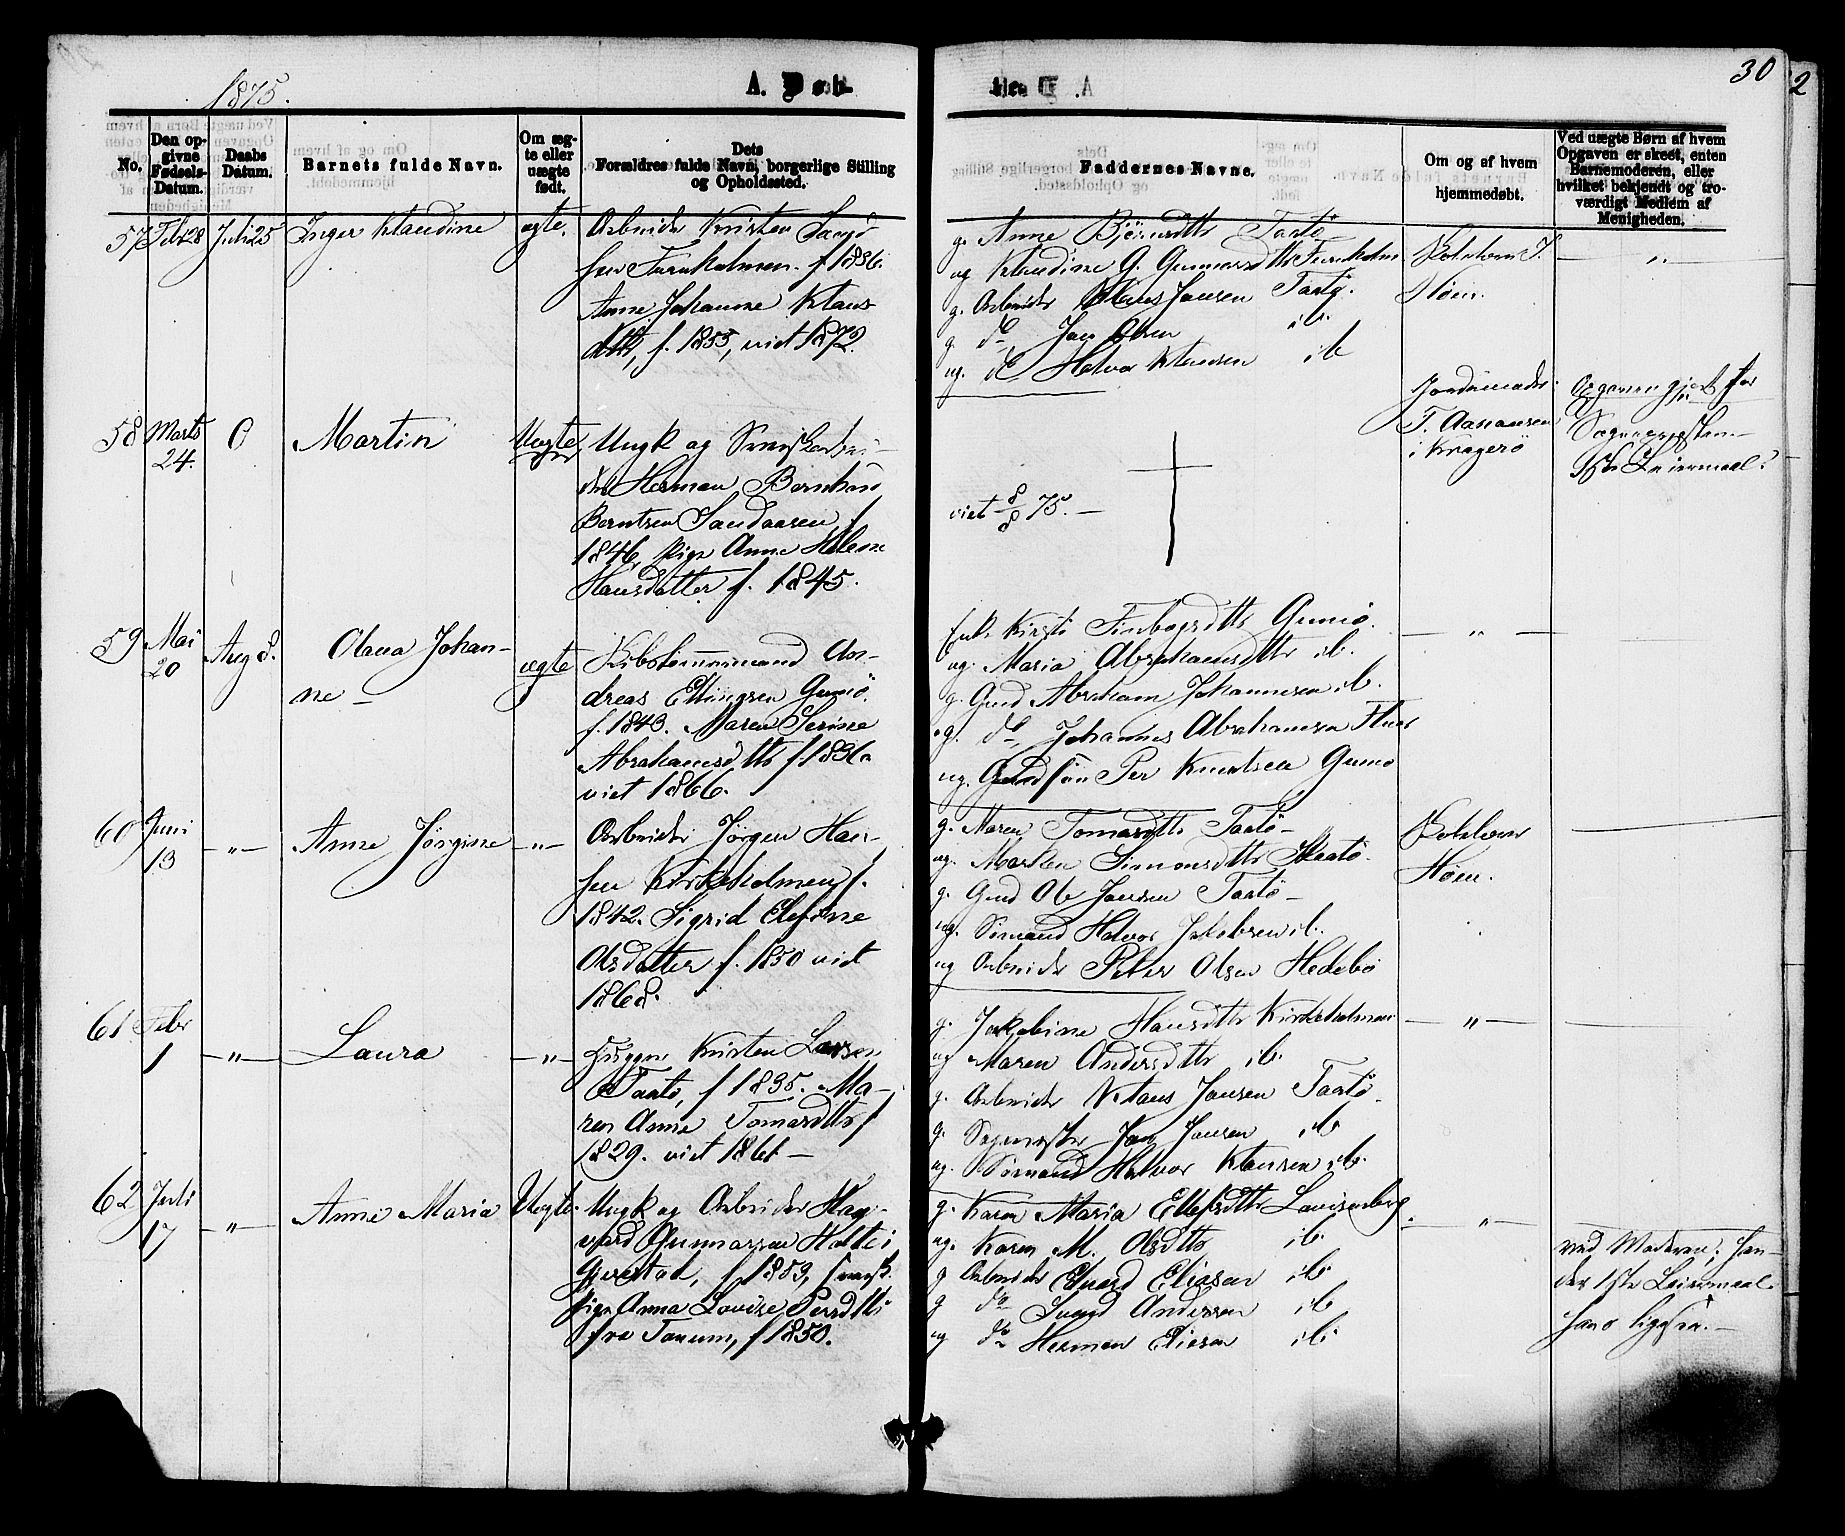 1875.
A. Døb.
30
2
No.
Den opgivne Fødsels-Datum.
Daabs Datum.
Barnets fulde Navn.
Om ægte eller uægte født.
Dets Forældres fulde Navn, borgerlige Stilling og Opholdssted.
Faddernes Navne.
Om og af hvem hjemmedøbt.
Ved uægte Børn af hvem Opgaven er skeet, enten Barnemoderen, eller hvilket bekjendt og troværdigt Medlem af Menigheden.
57 Febr 28 Juli 25 Inger Klaudine ægte.
Arbeider Kristen
f 1836.
Anne Johanne Klaus
dtr, f. 1853, viet 1872.
g. Anne Bjørnsdtr Taatø
ug Klaudine G. Gunnarsdtr Furuholm
g. Arbeider Klaus Jansen Taatø.
g. do Jan Olsen ib.
ug. do Halvor Klausen ib
58 Marts 24. 0 Martin Uægte
Ungk og
der Herman Bernhard
Berntsen Sandaasen f
1846, Pige Anne Helene
Hansdatter f. 1845.
viet 8/8 75. –
Jordemoder
F. Aanansen
i Kragerø
Opgaven gjort for
Sognepresten –
1ste Leiermaal.
59 Mai 20 Aug 8. Olava Johan-
ne – ægte
Andreas Ellingsen Gumø
f. 1843. Maren Serine
Abrahamsdtr f 1836
viet 1866.
Enke Kirsti Finbogsdtr Gumø
ug. Maria Abrahamsdtr ib.
g. Gmd Abraham Johannesen ib.
g. do Johannes Abrahamsen
ug. Gmdsøn Per Knutsen Gumø
– " –
60 Juni 13 – " – Anne Jørgine – " –
Arbeider Jørgen Han-
sen Kirkeholmen f.
1842. Sigrid Elefine
Olsdatter f. 1850 viet
1868.
g. Maren Tomasdtr Taatø –
ug. Marten Simonsdtr Skaatø.
g. Gmd Ole Jansen Taatø –
ug. Sømand Halvor Jakobsen ib.
ug Arbeider Peter Olsen Hedebø
61 Febr 1 – " – Laura – " –
Kristen Larsen
Taatø, f 1835. Ma-
ren Anne Tomasdtr f
1829. viet 1861 –
g. Jakobine Hansdtr Kirkeholmen
ug Maren Andersdtr ib.
g. Arbeider Klaus Jansen Taatø.
g. Jan Jansen ib
ug. Sømand Halvor Klausen ib.
– " –
62 Juli 17 – " – Anne Maria Uægte.
Ungk og Arbeider Hag-
vard Gunnarsen Holte i
Gjerestad, f 1853,
pige Anna Lovise Persdtr
fra Tanum, f 1850.
g. Karen Maria Ellefsdtr Lovisenberg
ug. Karen M. Olsdtr ib.
g Arbeider Edvard Eliasen ib
g do Svend Andersen ib
ug do Herman Eliasen ib.
– " –
ved Moderen; Hen-
des 1ste Leiermaal
hans ligesaa. –